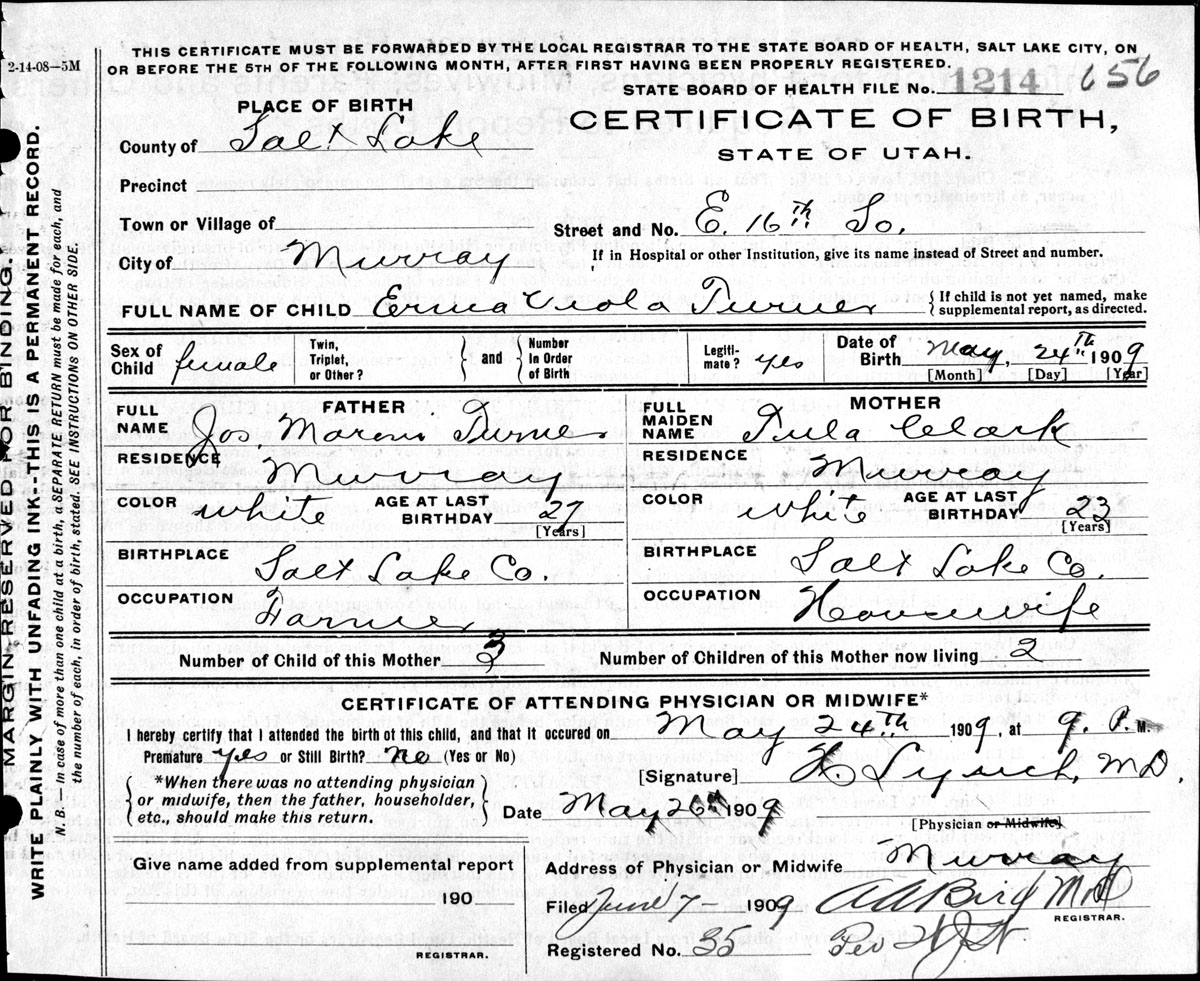 2-14-08—5M
THIS CERTIFICATE MUST BE FORWARDED BY THE LOCAL REGISTRAR TO THE STATE BOARD OF HEALTH, SALT LAKE CITY, ON
OR BEFORE THE 5TH OF THE FOLLOWING MONTH, AFTER FIRST HAVING BEEN PROPERLY REGISTERED.
STATE BOARD OF HEALTH FILE No. 1214 656
PLACE OF BIRTH
CERTIFICATE OF BIRTH,
STATE OF UTAH.
County of Salt Lake
Precinct
Town or Village of
Street and No. E. 16th So.
City of Murray
If in Hospital or other Institution, give its name instead of Street and number.
FULL NAME OF CHILD Erma Viola Turner
{ If child is not yet named, make
supplemental report, as directed.
Sex of Child female
Twin, Triplet, or Other?
} and {
Number in Order of Birth
Legiti- mate? yes
Date of Birth May, 24th 1909
[Month] [Day] [Year]
FATHER
FULL NAME Jos. Turner
RESIDENCE Murray
COLOR white AGE AT LAST BIRTHDAY 27
[Years]
BIRTHPLACE Salt Lake Co.
OCCUPATION Farmer
MOTHER
FULL MAIDEN NAME Clark
RESIDENCE Murray
COLOR white AGE AT LAST BIRTHDAY 23
[Years]
BIRTHPLACE Salt Lake Co.
OCCUPATION Housewife
Number of Child of this Mother 3
Number of Children of this Mother now living 2
CERTIFICATE OF ATTENDING PHYSICIAN OR MIDWIFE*
I hereby certify that I attended the birth of this child, and that it occured on May 24th 1909, at 9 P. M.
Premature yes or Still Birth? no (Yes or No)
*When there was no attending physician
or midwife, then the father, householder,
etc., should make this return.
[Signature] M.D.
Date May 26th 1909
[Physician or Midwife]
Give name added from supplemental report
190
REGISTRAR.
Address of Physician or Midwife Murray
Filed June 7- 1909 A A Bird M D
REGISTRAR.
Registered No. 35 Per
MARGIN RESERVED FOR BINDING.
WRITE PLAINLY WITH UNFADING INK--THIS IS A PERMANENT RECORD.
N. B.—In case of more than one child at a birth, a SEPARATE RETURN must be made for each, and
the number of each, in order of birth, stated. SEE INSTRUCTIONS ON OTHER SIDE.